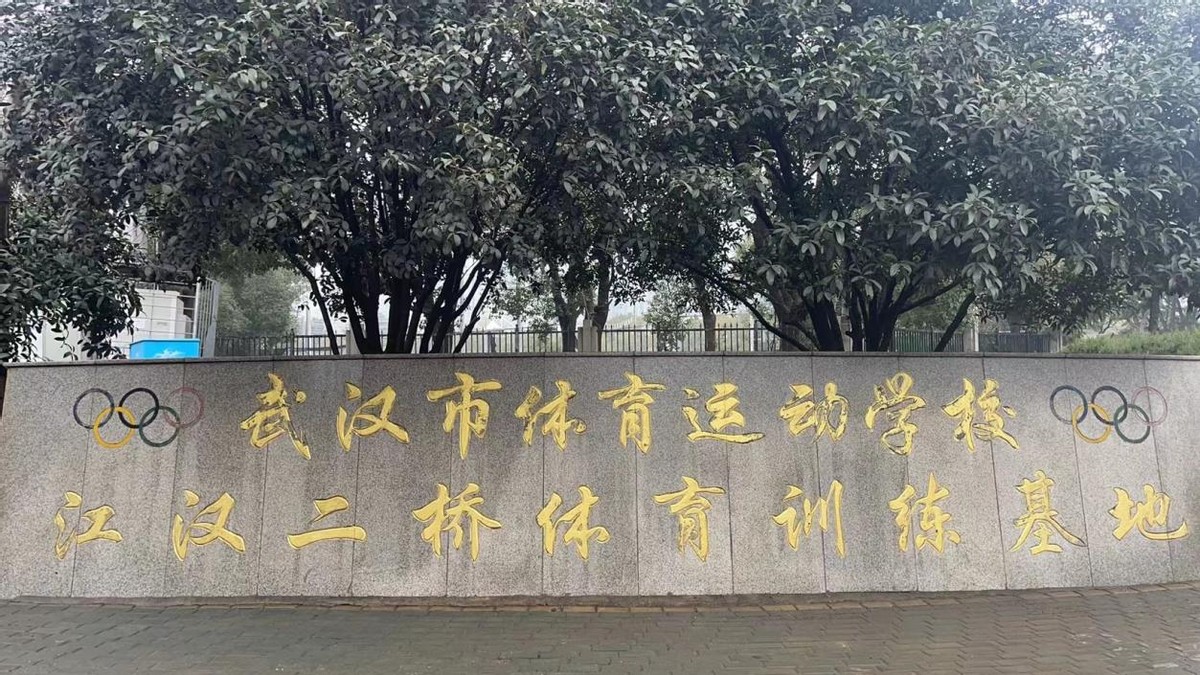 武汉市体育运动学校
江汉二桥体育训练基地